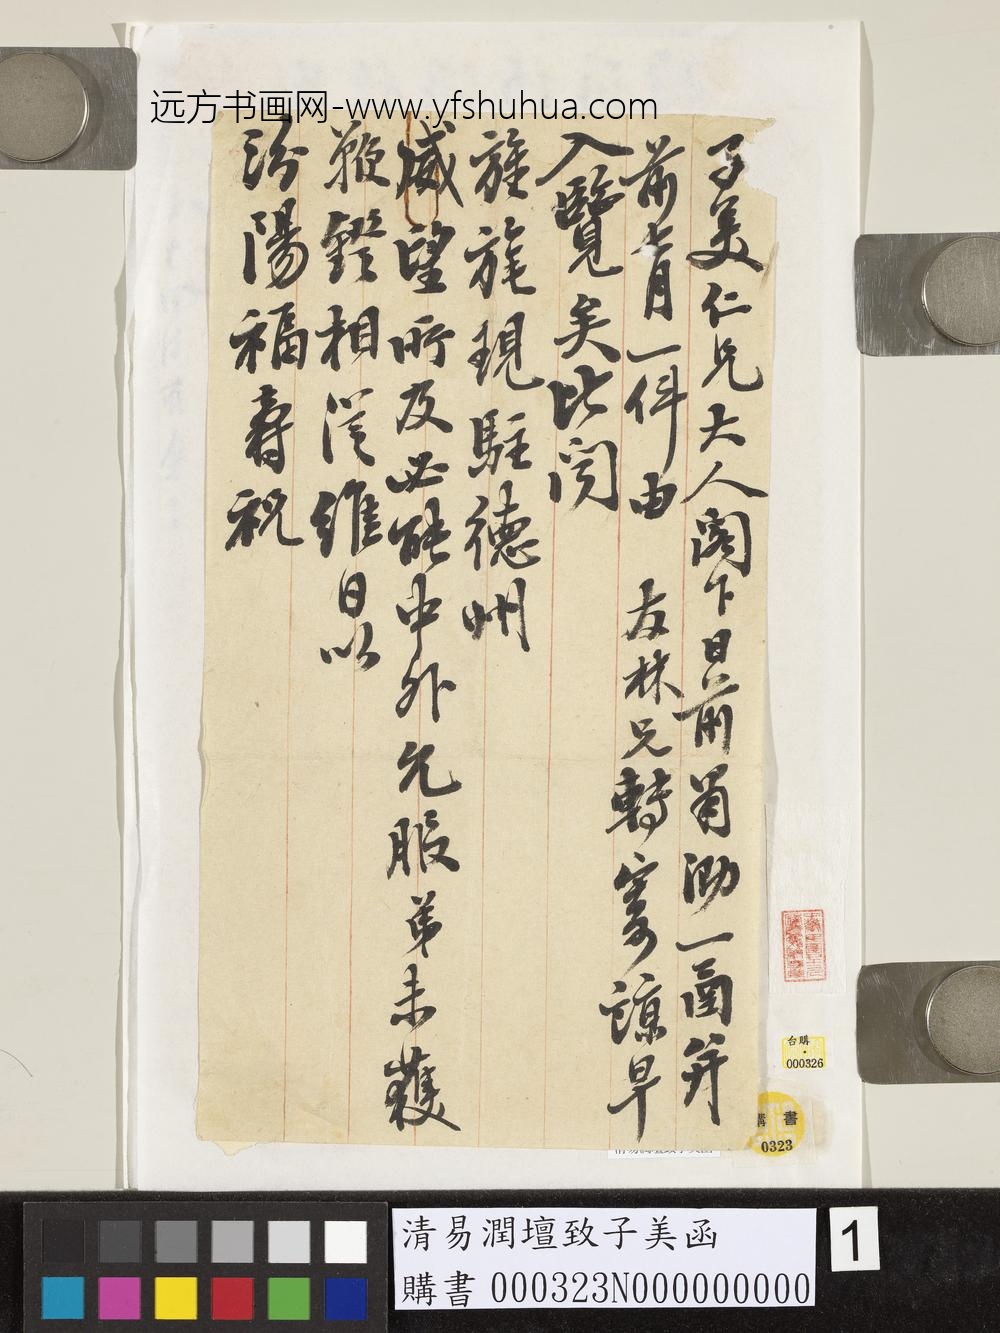 远方书画网-www.yfshuhua.com
子美仁兄大人閣下日前肅泐一函并
前七月一件由 友林兄轉寄諒早
入覽矣比閱
旌旄現駐德州
威望所及必能中外允服弟未獲
鞭鐙相從維日以
汾陽福壽祝
台購
000326
購書
0323
清易潤壇致子美函
購書 000323N000000000
1